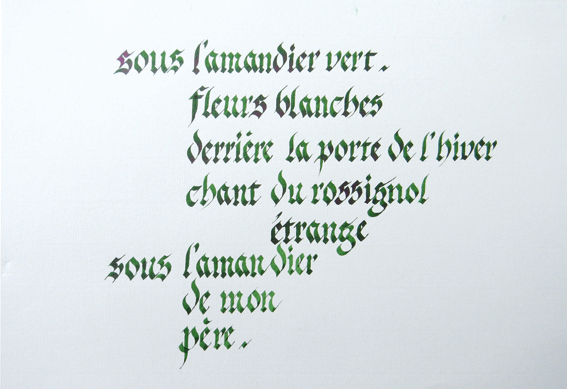 sous l'amandier vert.
fleurs blanches
derrière la porte de l'hiver
chant du rossignol
étrange
sous l'amandier
de mon
père.